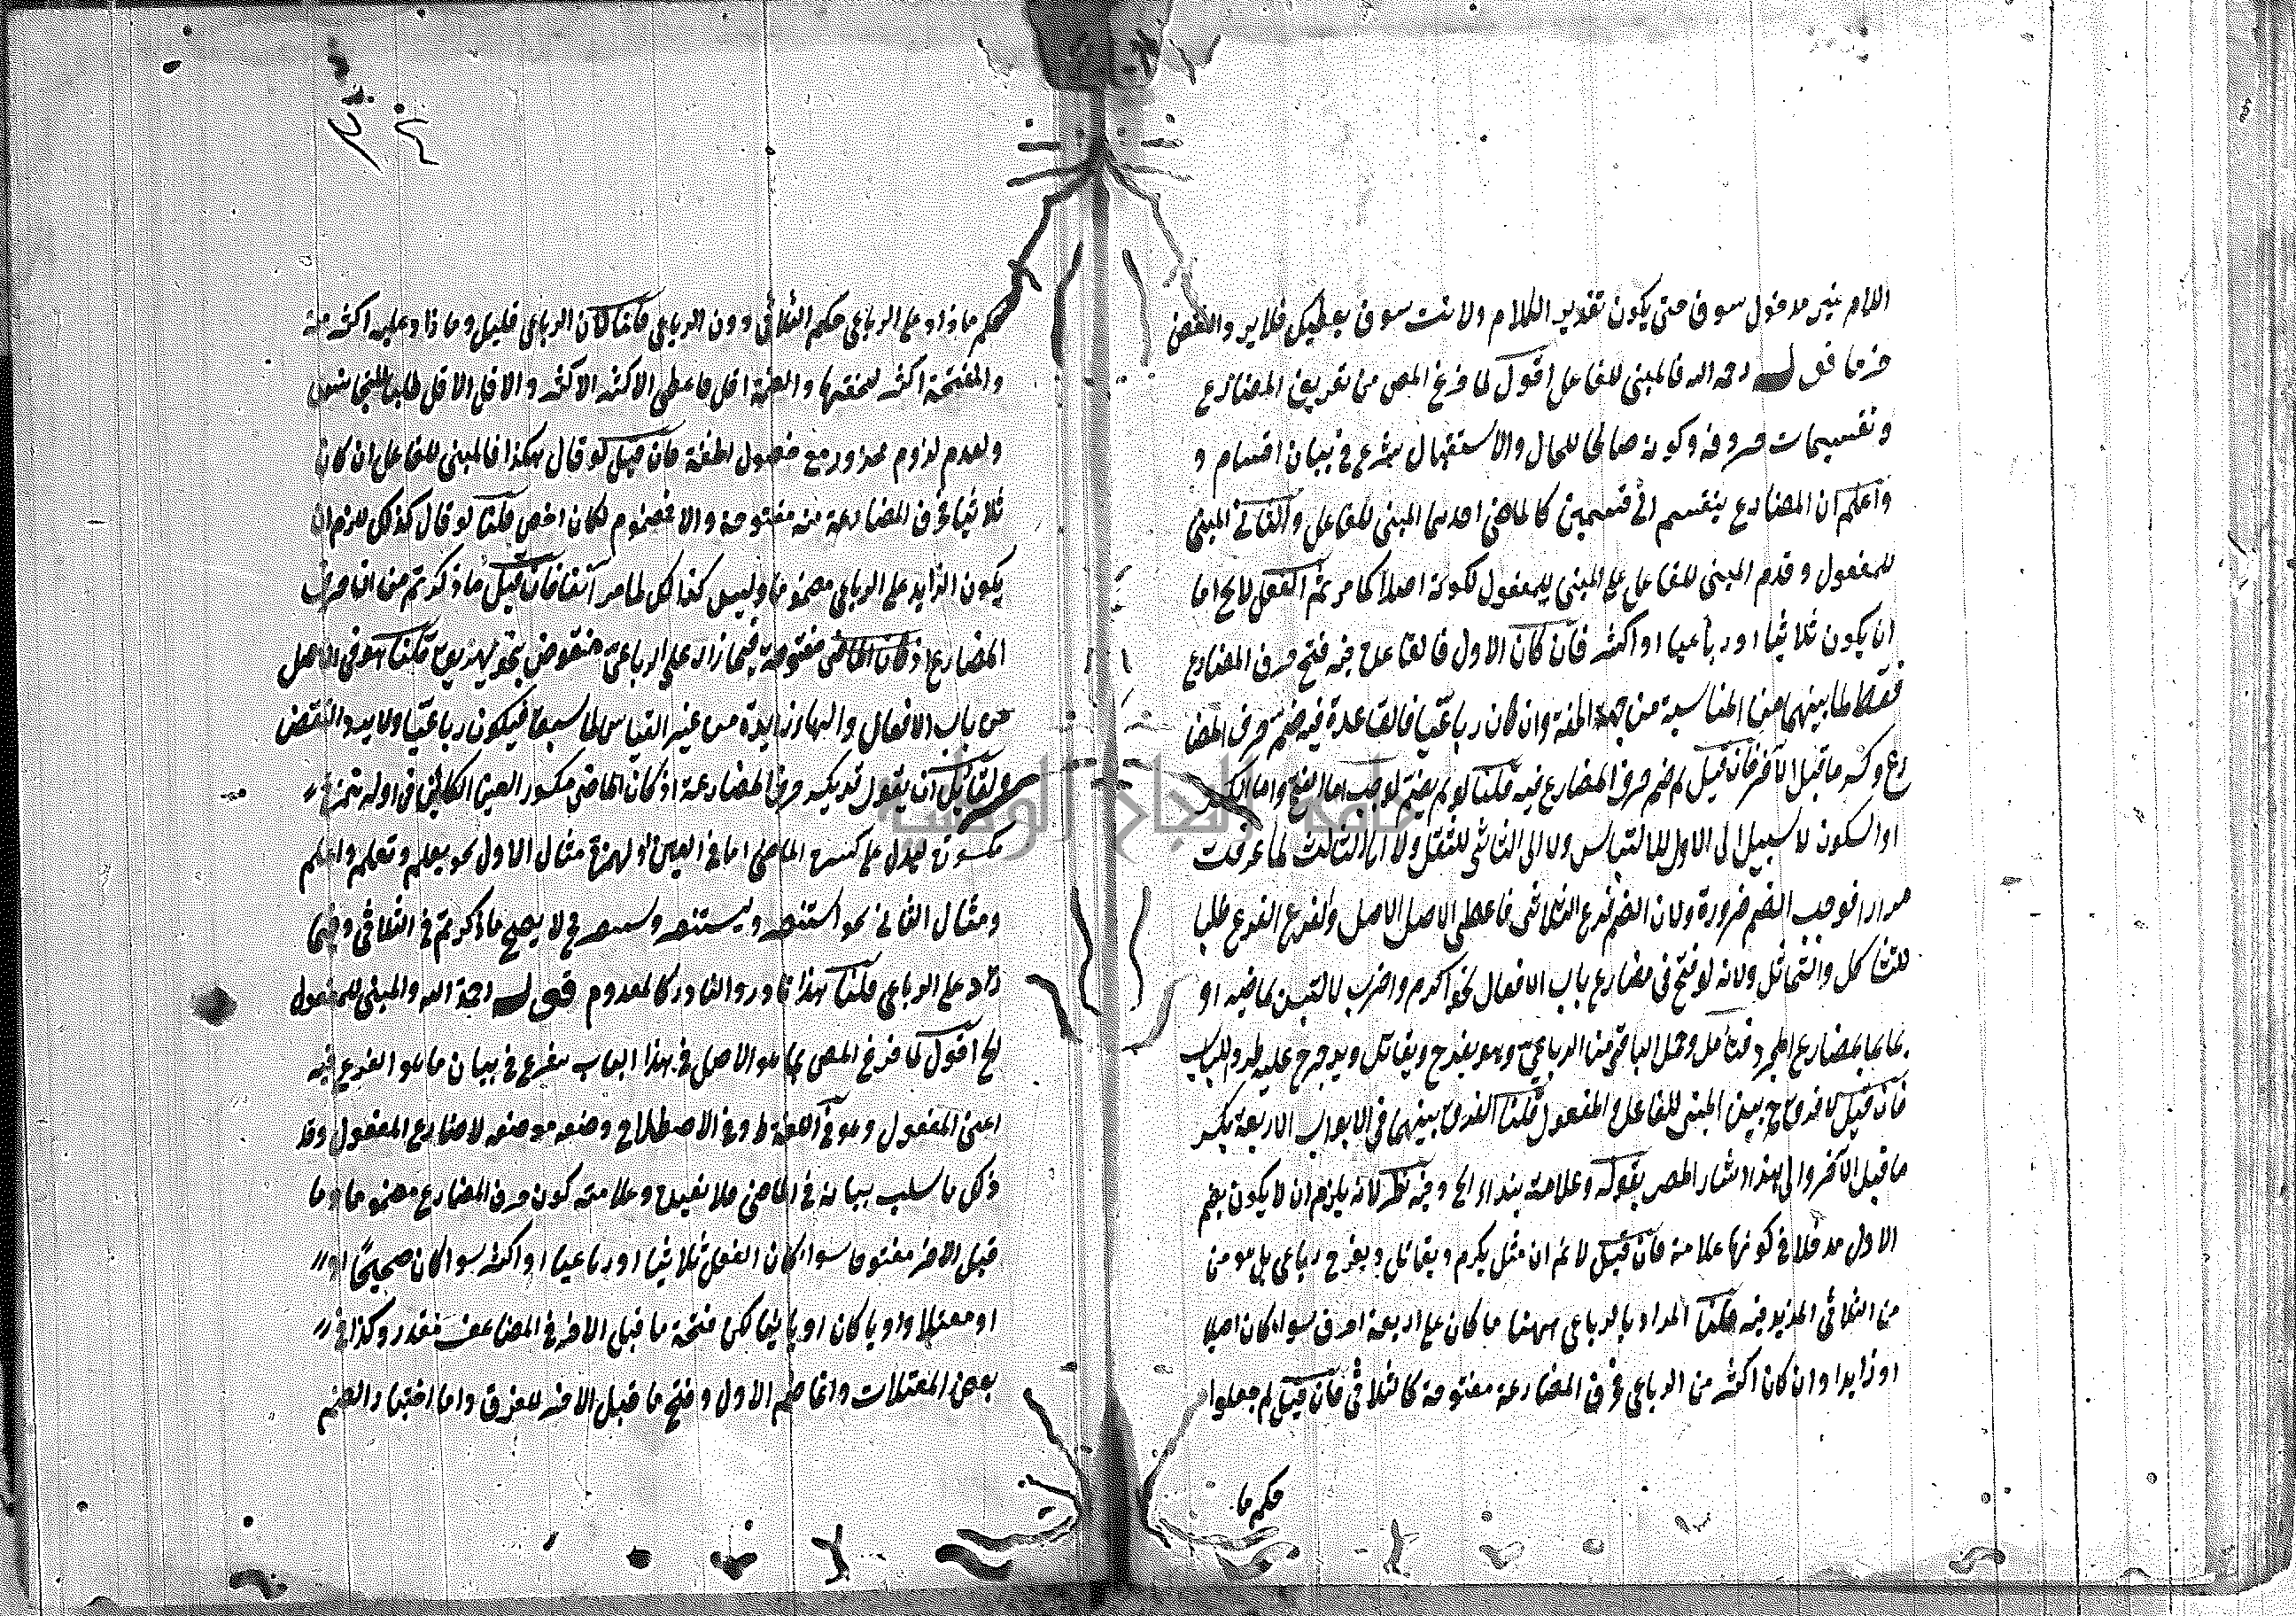 اللام غير مدخول سوف حتى يكون تقدير الكلام ولانت سوف يعطيك فلا يرد النقض
رحمه الله فالمبنى للفاعل اقول لما فرغ المص من تعريف المضارع
وتقسيمات حروفه وكونه صالحا للحال والاستقبال شرع في بيان اقسام و
واعلم ان المضارع ينقسم الى قسمين كالماضى احدهما المبنى للفاعل والثانى المبنى
للمفعول وقدم المبنى للفاعل على المبنى للمفعول لكونه اصلا كما مر ثم الفعل لا يخ اما
ان يكون ثلاثيا او رباعيا او اكثر فان كان الاول فالقاعدة فيه فتح حرف المضارع
فقط لما بينهما من المناسبة من جهة الخفة وان كان رباعيا فالقاعدة فيه ضم حرف المضا
رع وكسر ما قبل الآخر فان قيل لم ضم حرف المضارع فيه قلنا لو لم يضم لوجب اما الفتح واما الكسر
او السكون لا سبيل الى الاول للالتباس ولا الى الثانى للثقل ولا الى الثالث لما عرفت
مرارا فوجب الضم ضرورة ولان الضم فرع الثلاثى فاعطى الاصل الاصل والفرع الفرع طلبا
للتشاكل والتماثل ولانه لو فتح في مضارع باب الافعال نحو اكرم واضرب لالتبس بماضيه او
بمضارع المجرد فتأمل وحمل الباقى من الرباعى وهو يفرح ويقاتل ويدحرج عليه طردا للباب
فان قيل لا فرق ح بين المبنى للفاعل والمفعول قلنا الفرق بينهما في الابواب الاربعة بكسر
ما قبل الآخر والى هذا اشار المص بقوله وعلامة بناء الخ وفيه نظر لانه يلزم ان لا يكون بضم
الاول مدخلا في كونها علامة فان قيل لا نم ان مثل يكرم ويقاتل ويفرح رباعى بل هو من
من الثلاثى المزيد فيه قلنا المراد بالرباعى ههنا ما كان على اربعة احرف سواء كان اصلا
او زايدا وان كان اكثر من الرباعى فحرف المضارعة مفتوحة كالثلاثى فان قيل لم جعلوا
حكم ما
حكم ما زاد على الرباعى حكم الثلاثى دون الرباعى قلنا كان الرباعى قليل وما زاد عليه اكثر منه
والفتحة اكثر لخفتها والضمة اقل فاعطى الاكثر الاكثر والاقل الاقل طلبا للتجانس
ولعدم لزوم محذور مع حصول الخفة فان قيل لو قال هكذا فالمبنى للفاعل ان كان
ثلاثيا فحرف المضارعة منه مفتوحة والا فمضموم لكان اخص قلنا لو قال كذلك للزم ان
يكون الزايد على الرباعى مضموما وليس كذلك لما مر آنفا فان قيل ما ذكرتم من ان حرف
المضارع اذ كان الماضى مفتوحة فيما زاد على الرباعى منقوض بنحو يهريق قلنا هو في الاصل
من باب الافعال والهاء زايدة من غير القياس لما سبق فيكون رباعيا ولا يرد النقض
ولقائل ان يقول قد يكسر حرف المضارعة اذ كان الماضى مكسور العين الكائن في اوله همزة
مكسورة ليدل على كسرة الماضى اما في العين او الهمزة مثال الاول نحو يعلم وتعلم واعلم
ومثال الثانى نحو استنصر ويستنصر فح لا يصح ما ذكرتم في الثلاثى وفيما
زاد على الرباعى قلنا هذا نادر والنادر كالمعدوم قوله رحمة الله والمبنى للمفعول
الخ اقول لما فرغ المص بما هو الاصل في هذا الباب شرع في بيان ما هو الفرع فيه
اعنى المفعول وهو في اللغة ط وفي الاصطلاح وضعه موضعه لا مضارع المفعول وقد
ذكر ما سلب بيانه في الماضى فلا نعيده وعلامته كون حرف المضارع مضموما وما
قبل الاخر مفتوحا سواء كان الفعل ثلاثيا او رباعيا او اكثر سواء كان صحيحا او
او معتلا واويا كان او يائيا لكن فتحة ما قبل الاخر في المضاعف مقدر وكذا في
بعض المعتلات وانما ضم الاول وفتح ما قبل الاخر للفرق واما اختيار الضم